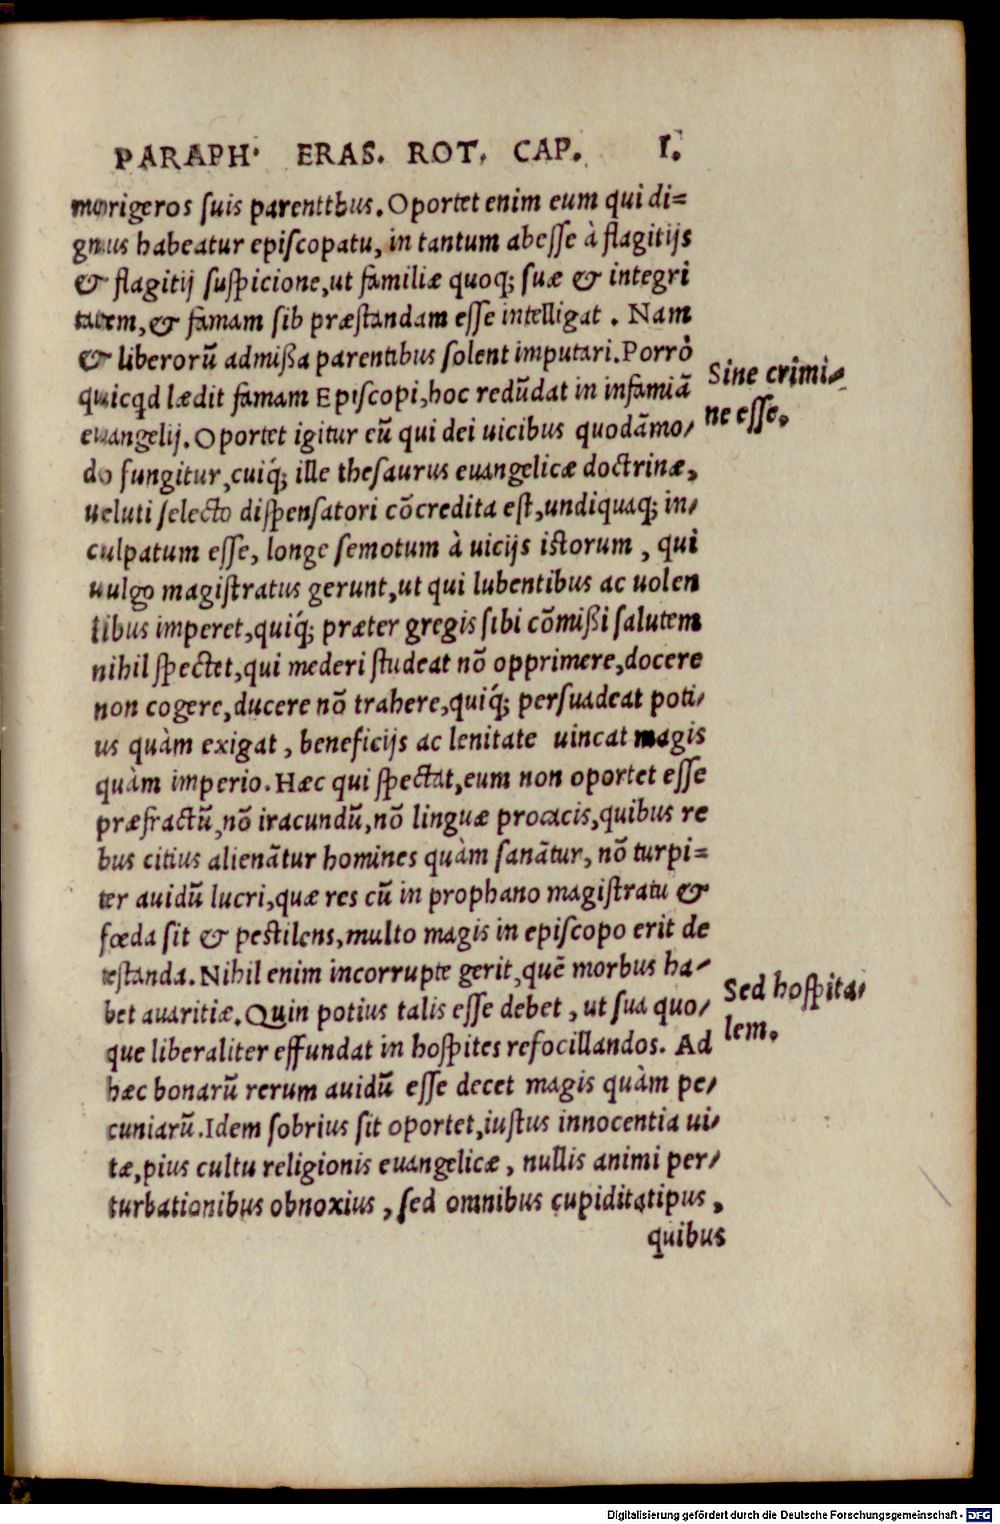 PARAPH· ERAS. ROT. CAP. I.
morigeros suis parenttbus. Oportet enim eum qui di=
gnus habeatur episcopatu, in tantum abesse à flagitijs
& flagitij suspicione, ut familiæ quoq; suæ & integri
tatem, & famam sib præstandam esse intelligat. Nam
& liberorũ admißa parentibus solent imputari. Porrò
quicqd lædit famam Episcopi, hoc redũdat in infamiã
euangelij. Oportet igitur eũ qui dei uicibus quodãmo/
do fungitur, cuiq́; ille thesaurus euangelicæ doctrinæ,
ueluti selecto dispensatori cõcredita est, undiquaq; in/
culpatum esse, longe semotum à uicijs istorum, qui
uulgo magistratus gerunt, ut qui lubentibus ac uolen
tibus imperet, quiq́; præter gregis sibi cõmißi salutem
nihil spectet, qui mederi studeat nõ opprimere, docere
non cogere, ducere nõ trahere, quiq́; persuadeat poti/
us quàm exigat, beneficijs ac lenitate uincat magis
quàm imperio. Hæc qui spectat, eum non oportet esse
præfractũ, nõ iracundũ, nõ linguæ procacis, quibus re
bus citius alienãtur homines quàm sanãtur, nõ turpi=
ter auidũ lucri, quæ res cũ in prophano magistratu &
fœda sit & pestilens, multo magis in episcopo erit de
testanda. Nihil enim incorrupte gerit, quẽ morbus ha/
bet auaritiæ. Quin potius talis esse debet, ut sua quo/
que liberaliter effundat in hospites refocillandos. Ad
hæc bonarũ rerum auidũ esse decet magis quàm pe/
cuniarũ. Idem sobrius sit oportet, iustus innocentia ui/
tæ, pius cultu religionis euangelicæ, nullis animi per/
turbationibus obnoxius, sed omnibus cupiditatipus,
quibus
Sine crimi/
ne esse.
Sed hospita/
lem.
Digitalisierung gefördert durch die Deutsche Forschungsgemeinschaft - DFG